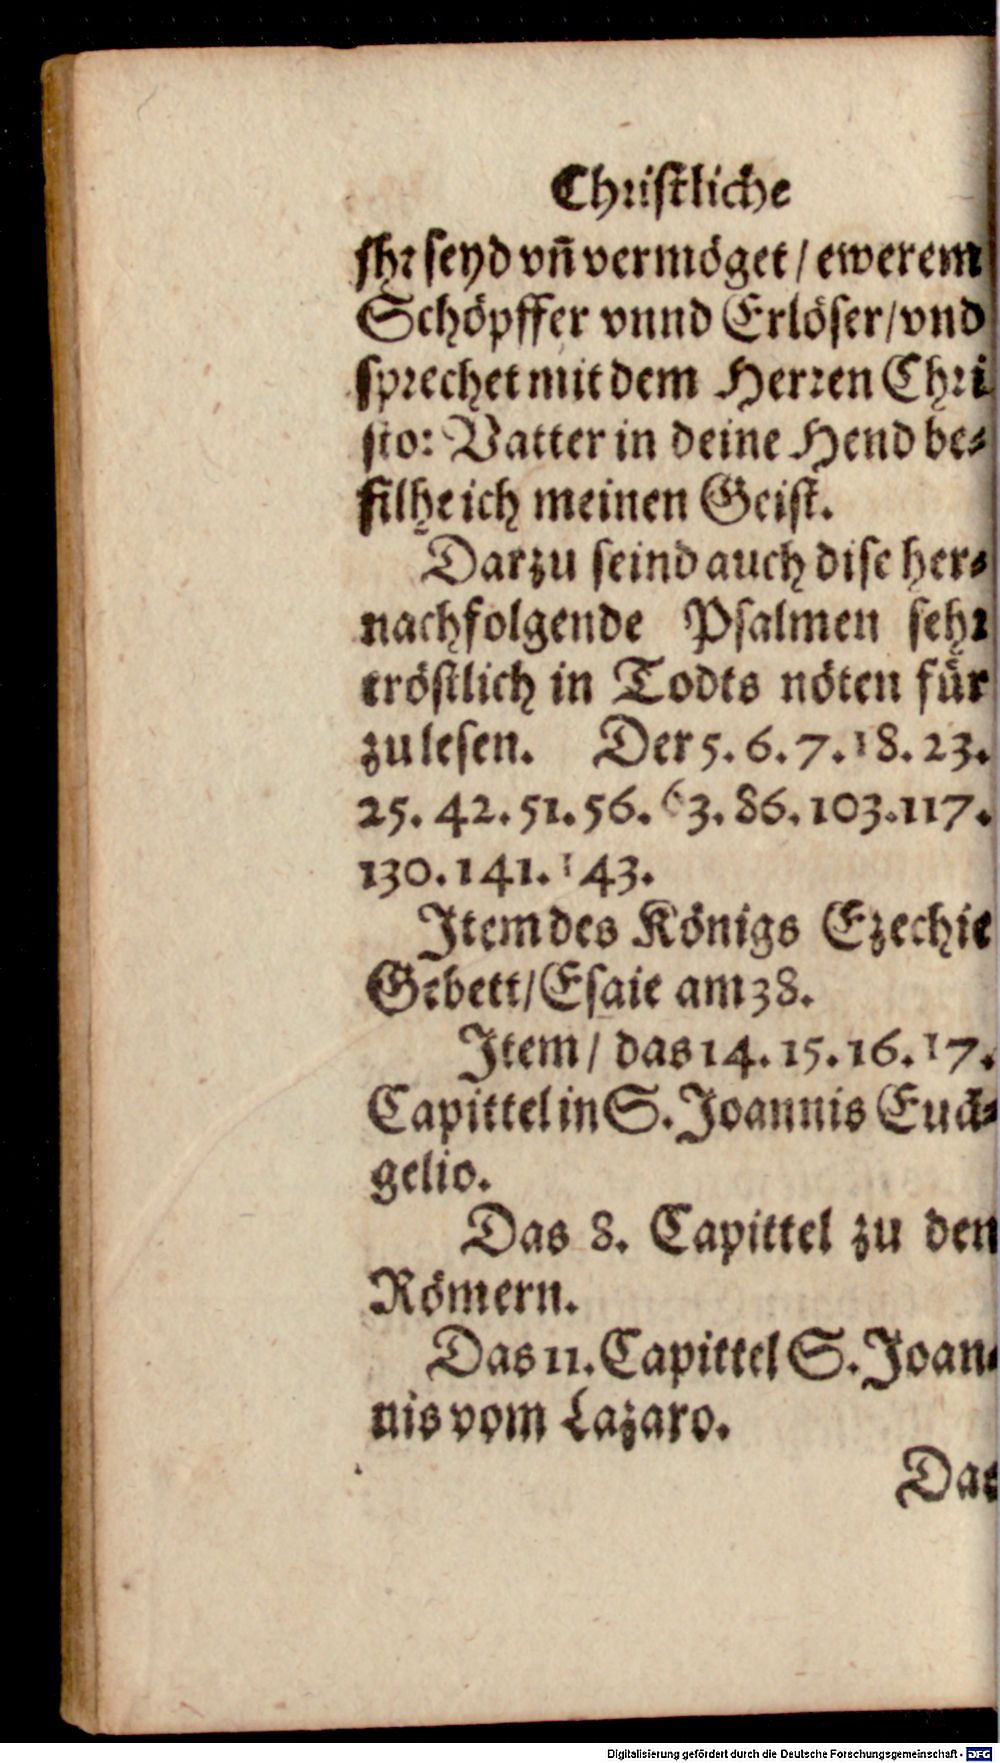 Christliche
jhr seyd vñ vermöget / ewerem
Schöpffer vnnd Erlöser / vnd
sprechet mit dem Herren Chri
sto: Vatter in deine Hend be⸗
filhe ich meinen Geist.
Darzu seind auch dise her⸗
nachfolgende Psalmen sehr
tröstlich in Todts nöten für
zu lesen. Der 5. 6. 7. 18. 23.
25. 42. 51. 56. 63. 86. 103. 117.
130. 141. 143.
Item des Königs Ezechie
Gebett / Esaie am 38.
Item / das 14. 15. 16. 17.
Capittel in S. Joannis Euā⸗
gelio.
Das 8. Capittel zu den
Römern.
Das 11. Capittel S. Joan⸗
nis vom Lazaro.
Das
Digitalisierung gefördert durch die Deutsche Forschungsgemeinschaft - DFG